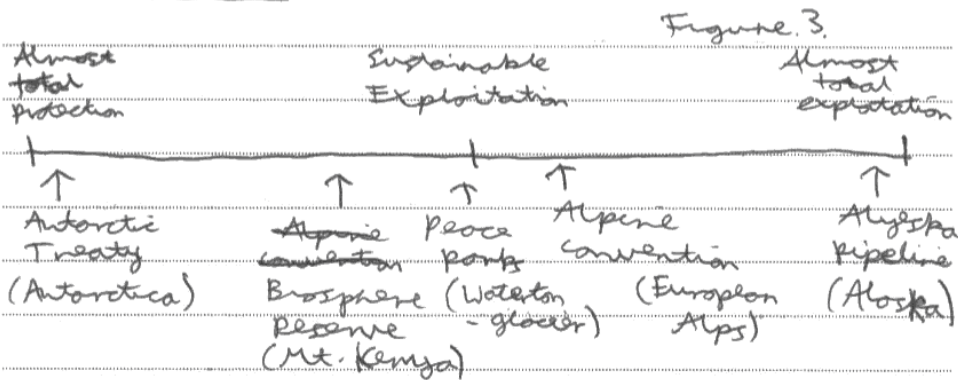 Figure. 3.
Almost
total
protection
Sustainable
Exploitation
Almost
total
explotation
Antarctic
Treaty
(Antarctica)
Alpine
convention
Biosphere
Reserve
(Mt. Kenya)
Peace
parks
(Waterton
- glacier)
Alpine
convention
(European
Alps)
Alyeska
Pipeline
(Alaska)